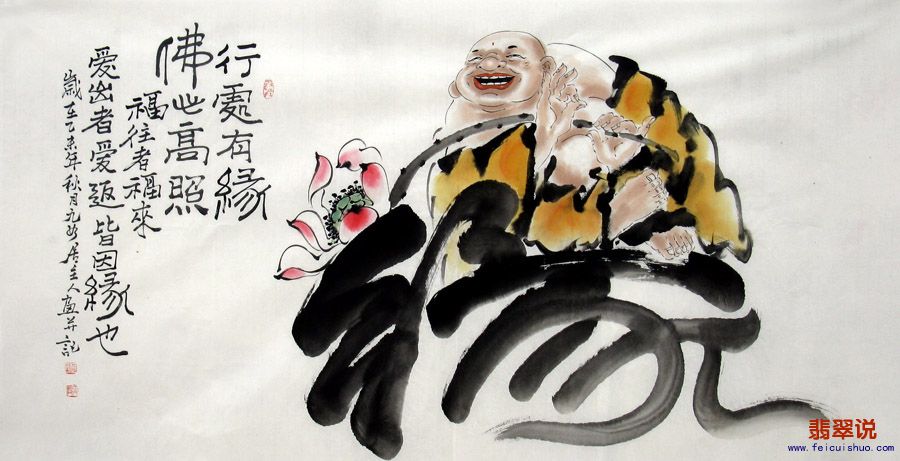 行處有緣
佛心高照
福往者福來
愛出者愛返皆因緣也
歲在乙未年秋月九如居主人畫并記
翡翠说
www.feicuishuo.com